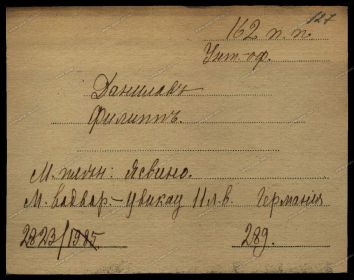 127
162 п. п.
Унт. оф.
Даниловъ
Филиппъ.
М. плѣн: Ясвино.
М. водвор - Цвикау 11 л.в. Германия
2823/1985 289.